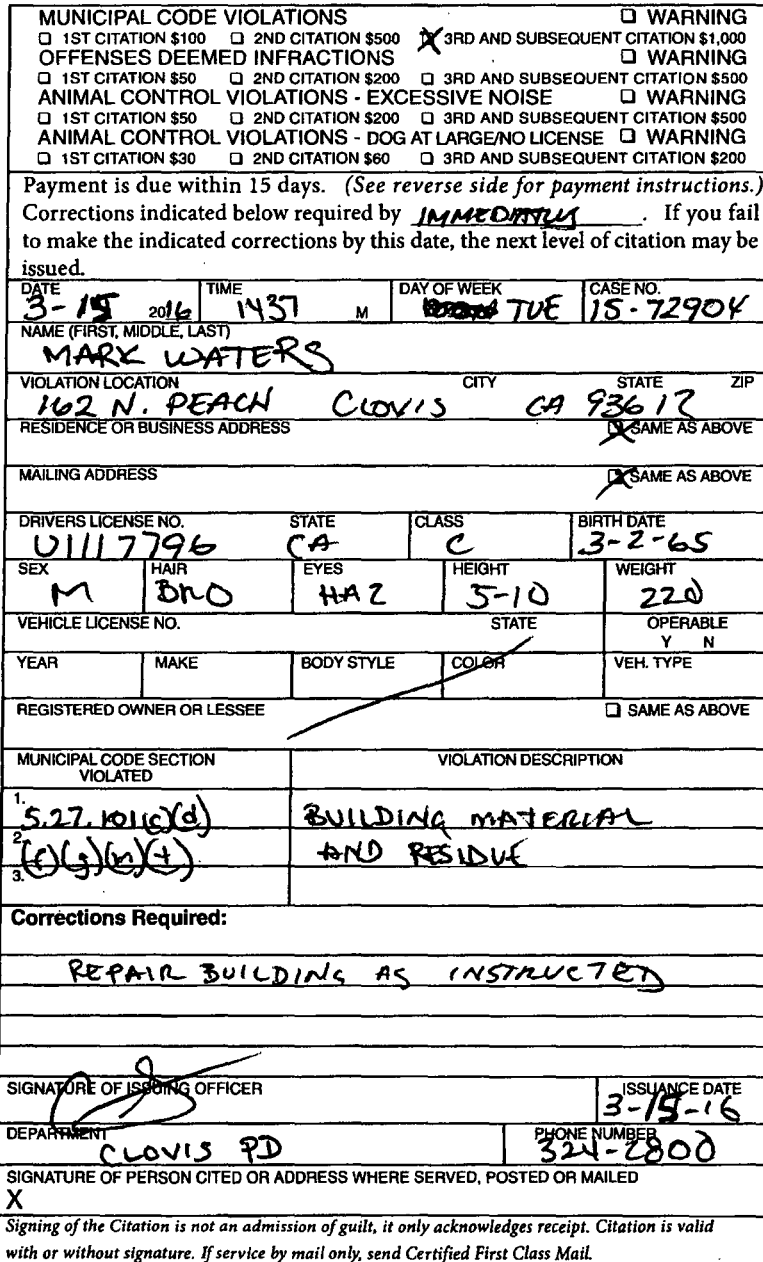 MUNICIPAL CODE VIOLATIONS ☐ WARNING
☐ 1ST CITATION $100 ☐ 2ND CITATION $500 ☒ 3RD AND SUBSEQUENT CITATION $1,000
OFFENSES DEEMED INFRACTIONS ☐ WARNING
☐ 1ST CITATION $50 ☐ 2ND CITATION $200 ☐ 3RD AND SUBSEQUENT CITATION $500
ANIMAL CONTROL VIOLATIONS - EXCESSIVE NOISE ☐ WARNING
☐ 1ST CITATION $50 ☐ 2ND CITATION $200 ☐ 3RD AND SUBSEQUENT CITATION $500
ANIMAL CONTROL VIOLATIONS - DOG AT LARGE/NO LICENSE ☐ WARNING
☐ 1ST CITATION $30 ☐ 2ND CITATION $60 ☐ 3RD AND SUBSEQUENT CITATION $200
Payment is due within 15 days. (See reverse side for payment instructions.)
Corrections indicated below required by . If you fail
to make the indicated corrections by this date, the next level of citation may be
issued.
DATE TIME DAY OF WEEK CASE NO.
3-15 2016 1437 M TUE 15-72904
NAME (FIRST, MIDDLE, LAST)
MARK WATERS
VIOLATION LOCATION CITY STATE ZIP
162 N. PEACH CLOVIS CA 93612
RESIDENCE OR BUSINESS ADDRESS ☒ SAME AS ABOVE
MAILING ADDRESS ☒ SAME AS ABOVE
DRIVERS LICENSE NO. STATE CLASS BIRTH DATE
U1117796 CA C 3-2-65
SEX HAIR EYES HEIGHT WEIGHT
M BRO HAZ 5-10 220
VEHICLE LICENSE NO. STATE OPERABLE
Y N
YEAR MAKE BODY STYLE COLOR VEH. TYPE
REGISTERED OWNER OR LESSEE ☐ SAME AS ABOVE
MUNICIPAL CODE SECTION VIOLATION DESCRIPTION
VIOLATED
1. 5.27.101(c)(d) BUILDING MATERIAL
2. (f)(g)(n)(t) AND RESIDUE
3.
Corrections Required:
REPAIR BUILDING AS INSTRUCTED
SIGNATURE OF ISSUING OFFICER ISSUANCE DATE
3-15-16
DEPARTMENT PHONE NUMBER
CLOVIS PD 324-2800
SIGNATURE OF PERSON CITED OR ADDRESS WHERE SERVED, POSTED OR MAILED
X
Signing of the Citation is not an admission of guilt, it only acknowledges receipt. Citation is valid
with or without signature. If service by mail only, send Certified First Class Mail.